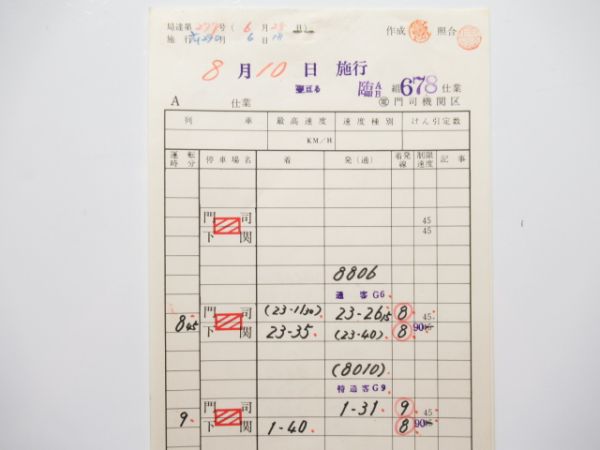 局達第277号(6月28日) 作成 照合
施行 6月 日
8月10日 施行
臨 A B 組 678 仕業
A 仕業 門司機関区
列車 最高速度 速度種別 けん引定数
KM/H
運転時分 停車場名 着 発(通) 着発線 制限速度 記事
門司 45
下関 45
8806
通客G6
門司 (23-11/30) 23-26 15 8 45
8 45 下関 23-35 (23-40) 8 90
(8010)
特通客G9
門司 1-31 9 45
9 下関 1-40 8 90